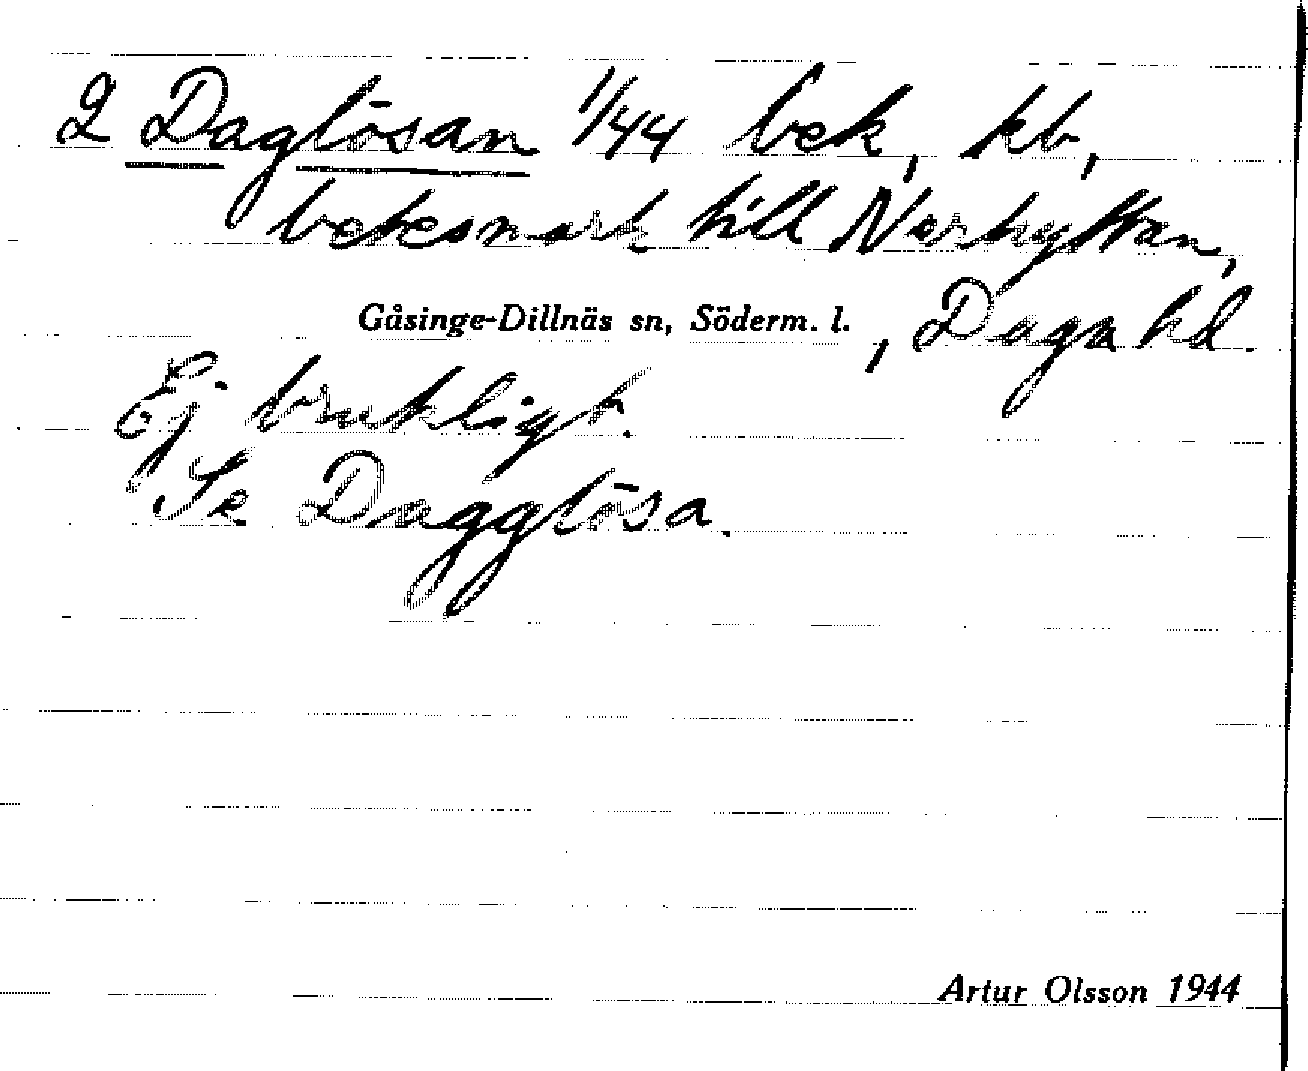 2 Daglösan 1/44 bek, kb,
betesmark till Nerhyttan,
Gåsinge-Dillnäs sn, Söderm. l., Daga hd.
Ej brukligt.
Se Dagglösa.
Artur Olsson 1944